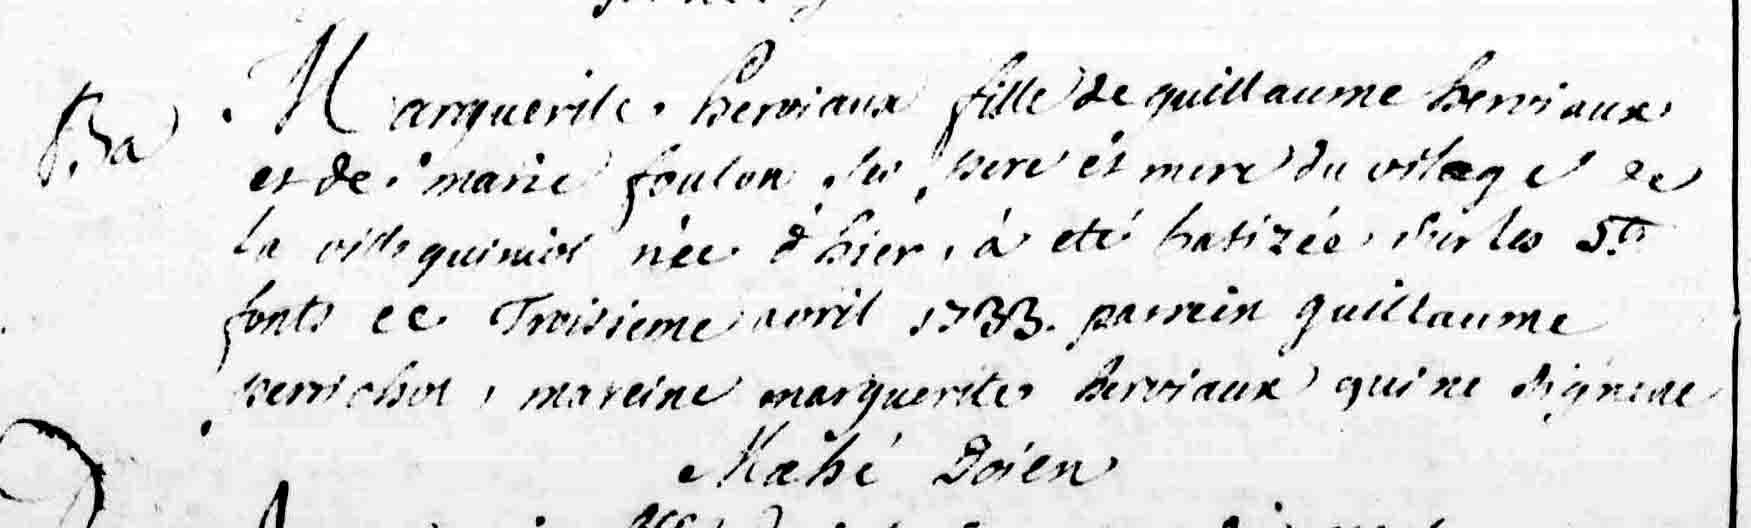 Ba
Marguerite herviaux fille de guillaume herviaux
et de marie foulon ses pere et mere du vilage de
la ville quiniot née d'hier, à eté batizée sur les Sts
fonts ce Troisieme avril 1733. parrein guillaume
perrichot, mareine marguerite herviaux qui ne signent
Mahé Doien